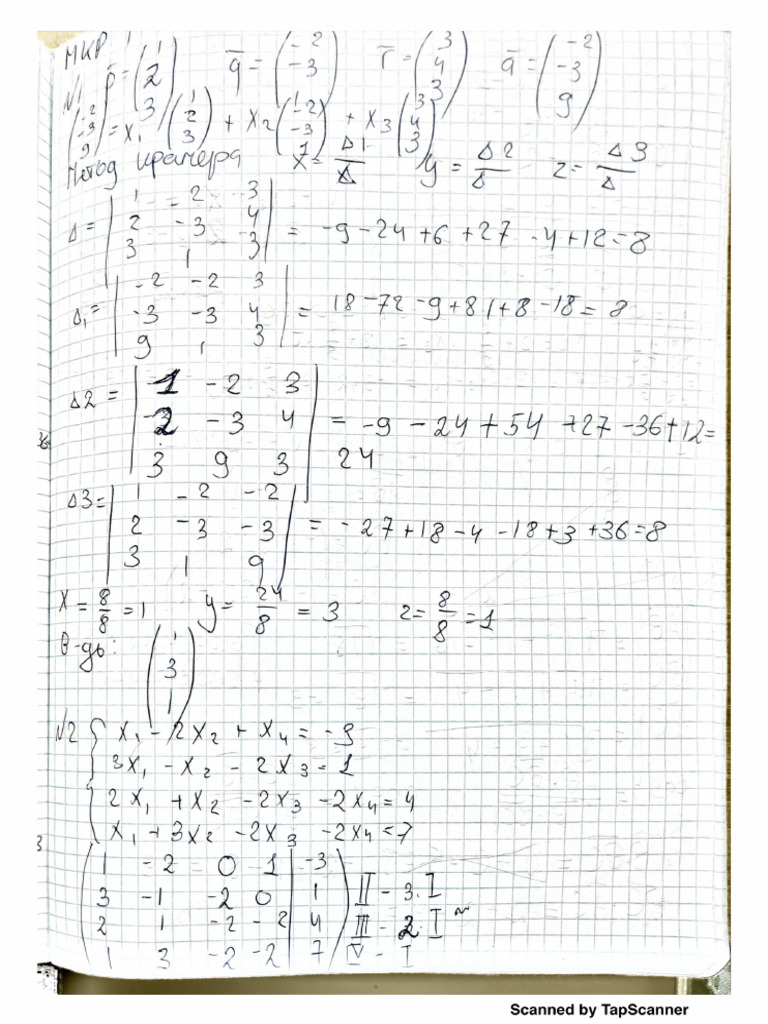 МКР
№1 p̄ = (1 2 3) q̄ = (-2 -3 1) r̄ = (3 4 3) ā = (-2 -3 9)
(-2 -3 9) = x₁ (1 2 3) + x₂ (-2 -3 1) + x₃ (3 4 3)
Метод крамера x = Δ1/Δ y = Δ2/Δ z = Δ3/Δ
Δ = | 1 -2 3
2 -3 4
3 1 3 | = -9 -24 +6 +27 -4 +12 = 8
Δ₁ = | -2 -2 3
-3 -3 4
9 1 3 | = 18 -72 -9 +81 +8 -18 = 8
Δ2 = | 1 -2 3
2 -3 4
3 9 3 | = -9 -24 +54 +27 -36 +12 =
24
Δ3 = | 1 -2 -2
2 -3 -3
3 1 9 | = -27 +18 -4 -18 +3 +36 = 8
x = 8/8 = 1 y = 24/8 = 3 z = 8/8 = 1
В-дь: (1 3 1)
№2 { x₁ - 2x₂ + x₄ = -3
3x₁ - x₂ - 2x₃ = 1
2x₁ + x₂ - 2x₃ - 2x₄ = 4
x₁ + 3x₂ - 2x₃ - 2x₄ = 7
( 1 -2 0 1 | -3
3 -1 -2 0 | 1 ) II - 3·I
2 1 -2 -2 | 4 III - 2·I ~
1 3 -2 -2 | 7 IV - I
Scanned by TapScanner